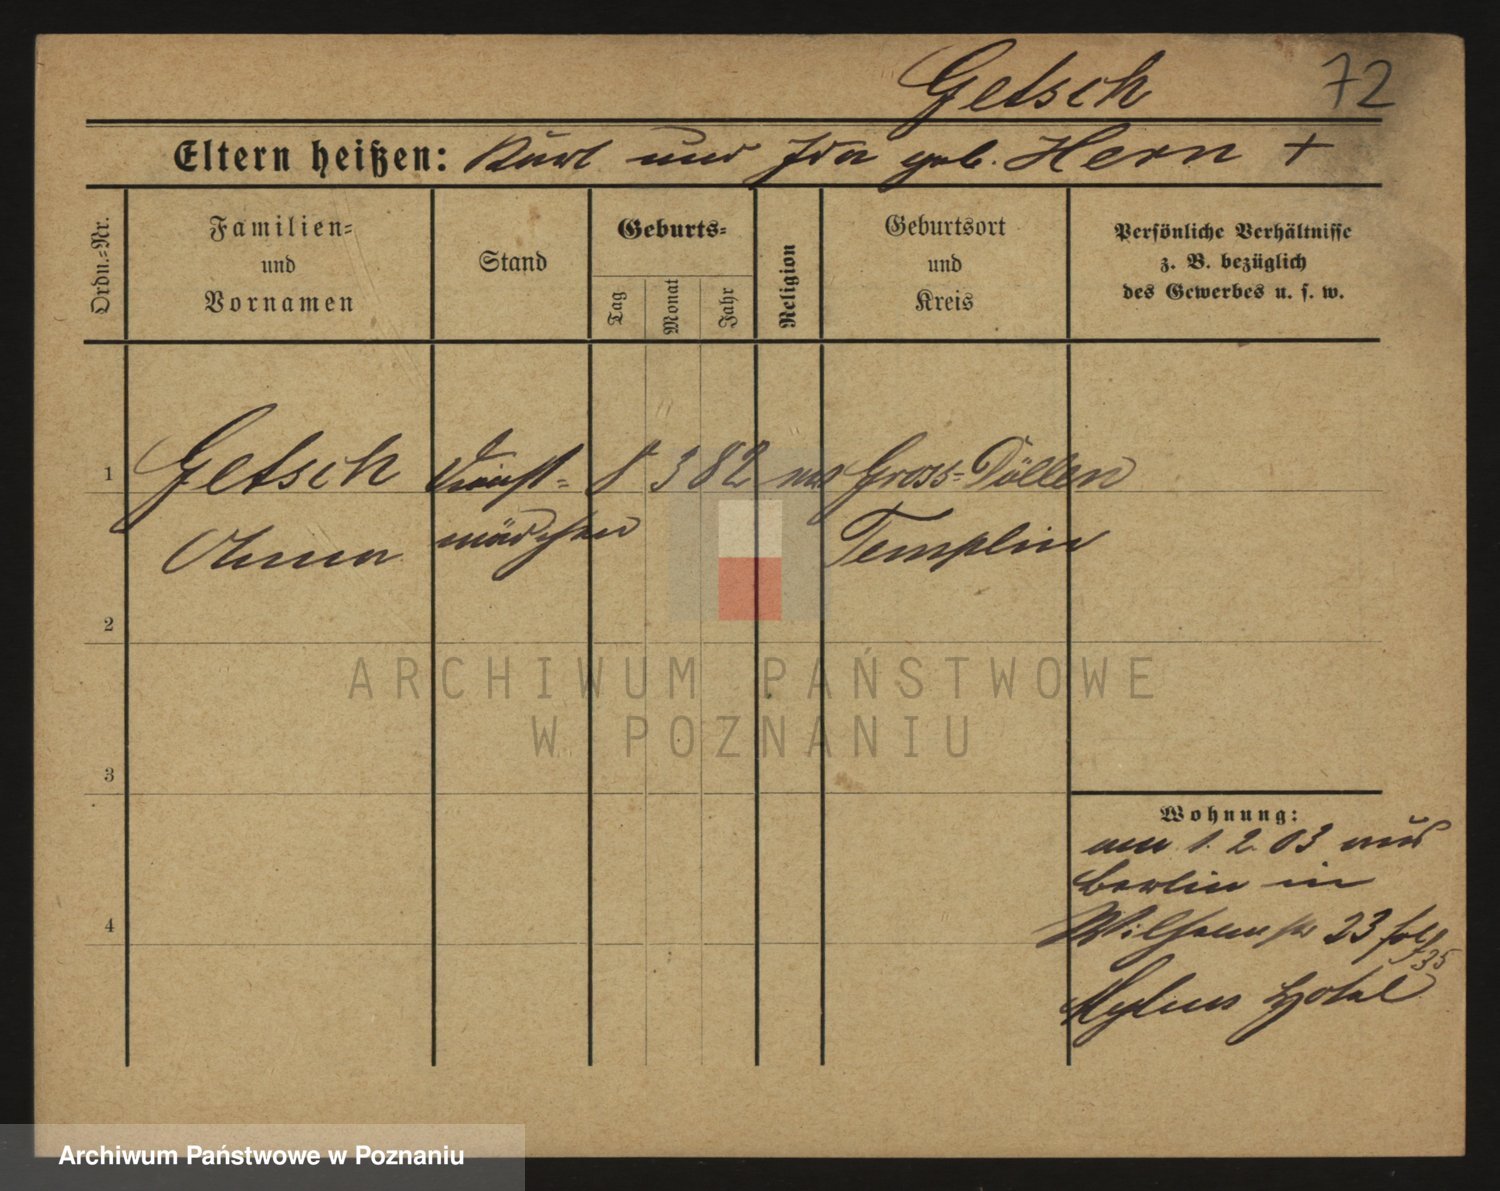 Getsch 72
Eltern heißen: Kurt und Ida geb. Hern +
Ordn.-Nr.
Familien-
und
Vornamen
Stand
Geburts-
Tag
Monat
Jahr
Religion
Geburtsort
und
Kreis
Persönliche Verhältnisse
z. B. bezüglich
des Gewerbes u. s. w.
1 Getsch Dienst- 8 3 82 Gross-Döllen
Anna mädchen Templin
2
ARCHIWUM PAŃSTWOWE
W POZNANIU
3
Wohnung:
am 1. 2. 03 aus
Berlin in
4
Wilhelmstr 23
35
Mylius Hotel
Archiwum Państwowe w Poznaniu